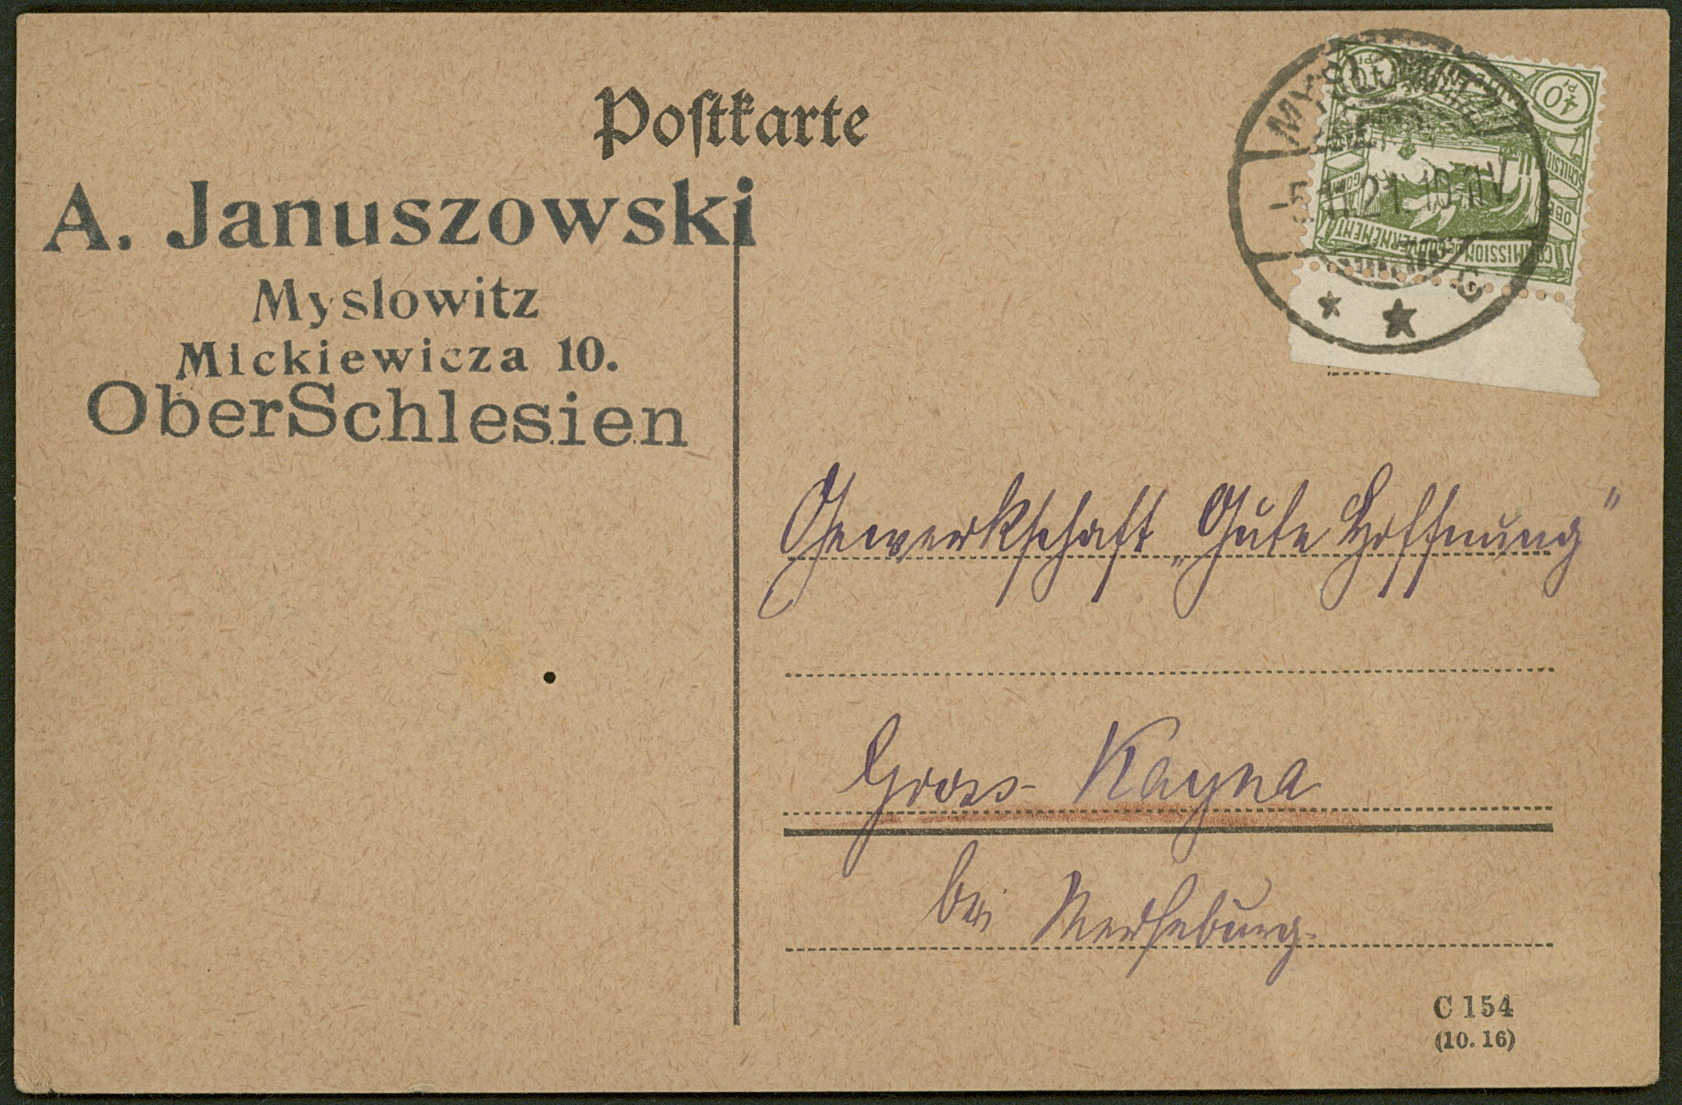 Postkarte
A. Januszowski
Myslowitz
Mickiewicza 10.
OberSchlesien
MYSLOWITZ
21. 10-11V.
* * c
40 Pf
COMMISSION DE GOUVERNEMENT
Gewerkschaft „Gute Hoffnung“
Gross-Kayna
bei Merseburg.
C 154
(10. 16)